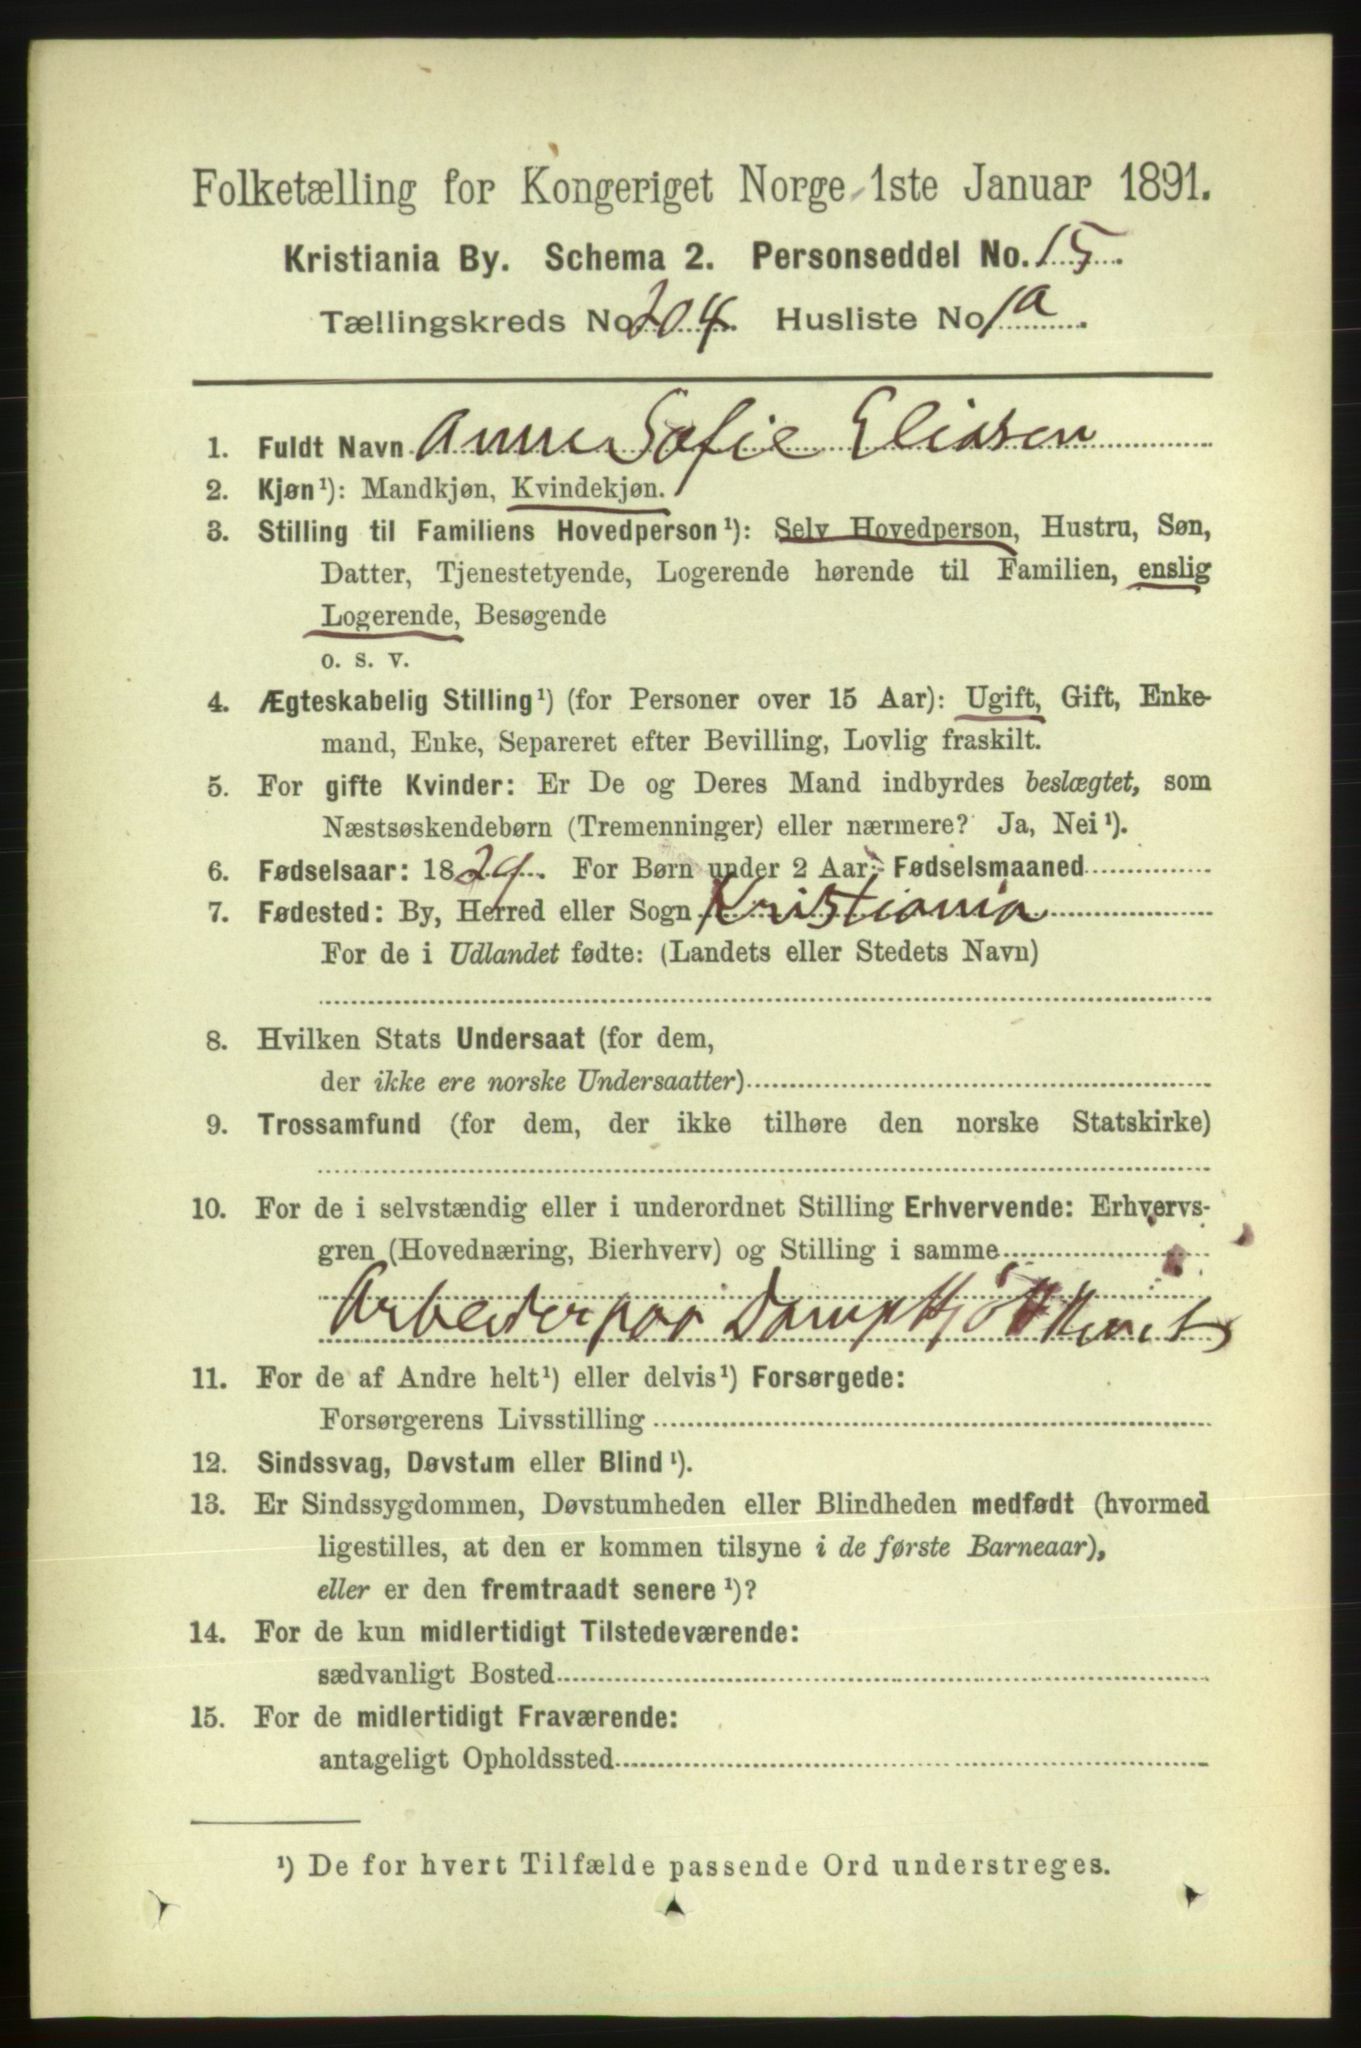 Folketælling for Kongeriget Norge 1ste Januar 1891.
Kristiania By. Schema 2. Personseddel No. 15.
Tællingskreds No 204. Husliste No 1a.
1. Fuldt Navn Anne Sofie Eliasen
2. Kjøn¹): Mandkjøn, Kvindekjøn.
3. Stilling til Familiens Hovedperson¹): Selv Hovedperson, Hustru, Søn,
Datter, Tjenestetyende, Logerende hørende til Familien, enslig
Logerende, Besøgende
o. s. v.
4. Ægteskabelig Stilling¹) (for Personer over 15 Aar): Ugift, Gift, Enke-
mand, Enke, Separeret efter Bevilling, Lovlig fraskilt.
5. For gifte Kvinder: Er De og Deres Mand indbyrdes beslægtet, som
Næstsøskendebørn (Tremenninger) eller nærmere? Ja, Nei¹).
6. Fødselsaar: 1829. For Børn under 2 Aar: Fødselsmaaned
7. Fødested: By, Herred eller Sogn Kristiania
For de i Udlandet fødte: (Landets eller Stedets Navn)
8. Hvilken Stats Undersaat (for dem,
der ikke ere norske Undersaatter)
9. Trossamfund (for dem, der ikke tilhøre den norske Statskirke)
10. For de i selvstændig eller i underordnet Stilling Erhvervende: Erhvervs-
gren (Hovednæring, Bierhverv) og Stilling i samme
Arbeider paa
11. For de af Andre helt¹) eller delvis¹) Forsørgede:
Forsørgerens Livsstilling
12. Sindssvag, Døvstum eller Blind¹).
13. Er Sindssygdommen, Døvstumheden eller Blindheden medfødt (hvormed
ligestilles, at den er kommen tilsyne i de første Barneaar),
eller er den fremtraadt senere¹)?
14. For de kun midlertidigt Tilstedeværende:
sædvanligt Bosted
15. For de midlertidigt Fraværende:
antageligt Opholdssted
¹) De for hvert Tilfælde passende Ord understreges.